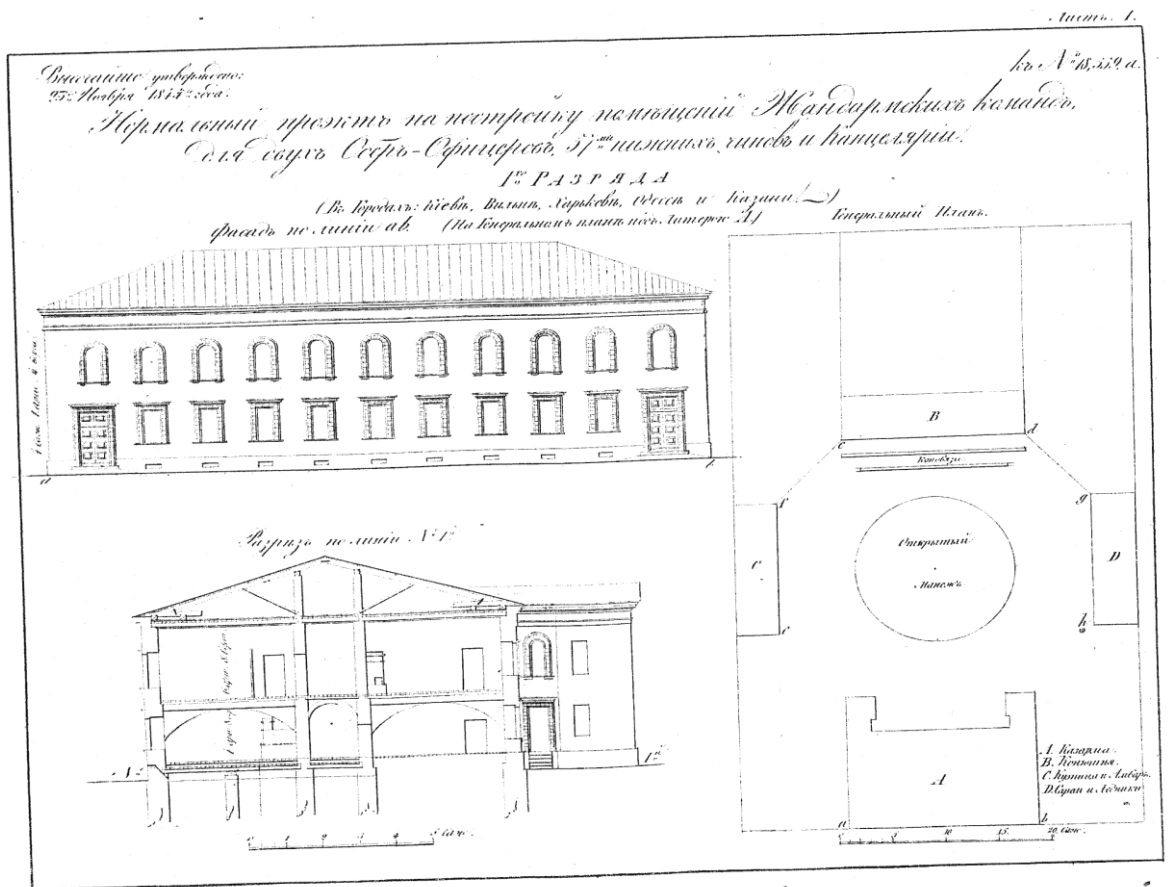 Листъ. 1.
Высочайше утверждено:
25го Ноября 1844го года.
къ № 18,559. а.
Нормальный проэктъ на постройку помѣщеній Жандармскихъ командъ,
для двухъ Оберъ-Офицеровъ, 57ми нижнихъ чиновъ и Канцеляріи.
1го РАЗРЯДА
(Въ Городахъ: Кіевѣ, Вильнѣ, Харьковѣ, Одессѣ и Казани.)
Фасадъ по линіи ab. (На Генеральномъ планѣ подъ Литерою А)
Генеральный Планъ.
a
b
Разрѣзъ по линіи № 1й
№
1й
1 2 3 4 5 саж.
B
c
d
Коновязи
f
g
C
Открытый
Манежъ
D
e
h
A
А. Казарма.
В. Конюшня.
С. Кухня и Амбаръ.
D. Сараи и Ледники
a
b
5 10 15. 20. Саж.